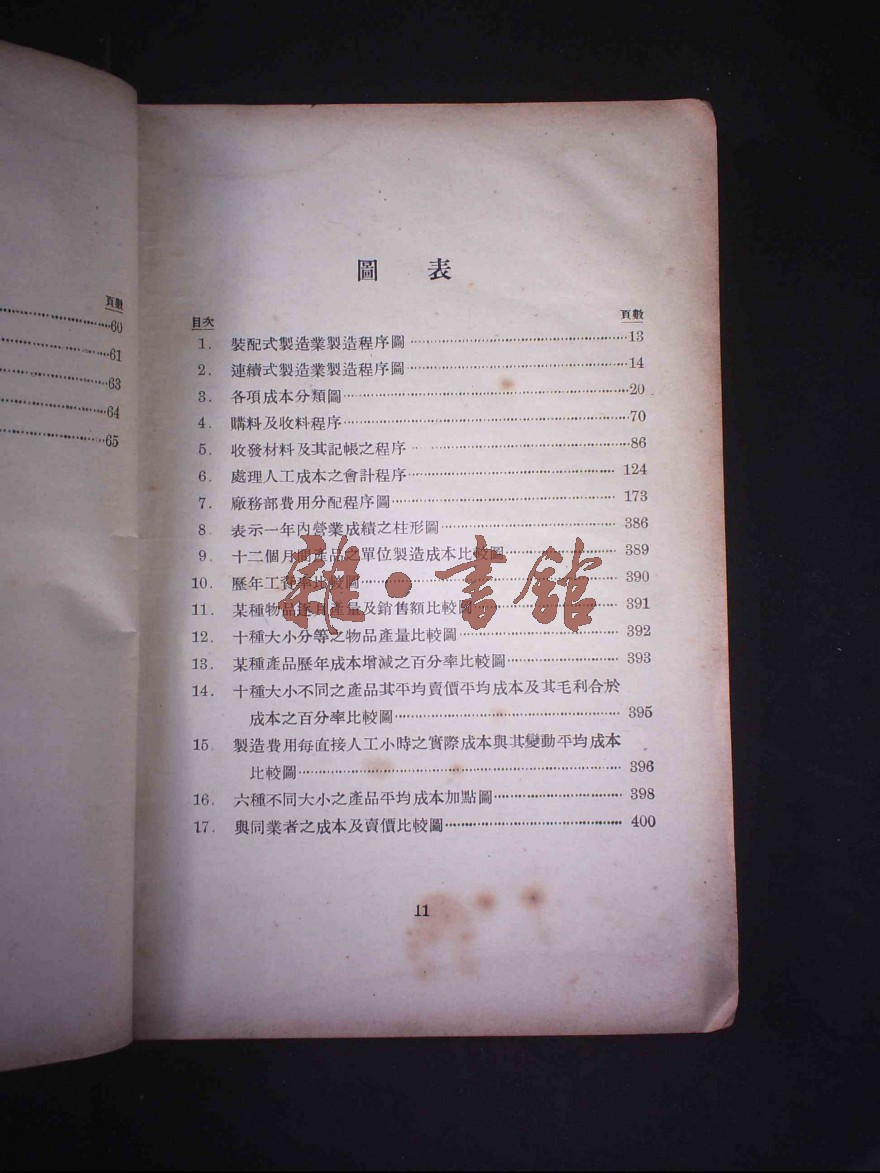 頁數
60
61
63
64
65
圖 表
目次 頁數
1. 裝配式製造業製造程序圖 13
2. 連續式製造業製造程序圖 14
3. 各項成本分類圖 20
4. 購料及收料程序 70
5. 收發材料及其記帳之程序 86
6. 處理人工成本之會計程序 124
7. 廠務部費用分配程序圖 173
8. 表示一年內營業成績之柱形圖 386
9. 十二個月間產品之單位製造成本比較圖 389
10. 歷年工資率比較圖 390
11. 某種物品逐月產量及銷售額比較圖 391
12. 十種大小分等之物品產量比較圖 392
13. 某種產品歷年成本增減之百分率比較圖 393
14. 十種大小不同之產品其平均賣價平均成本及其毛利合於
成本之百分率比較圖 395
15. 製造費用每直接人工小時之實際成本與其變動平均成本
比較圖 396
16. 六種不同大小之產品平均成本加點圖 398
17. 與同業者之成本及賣價比較圖 400
11
雜·書館